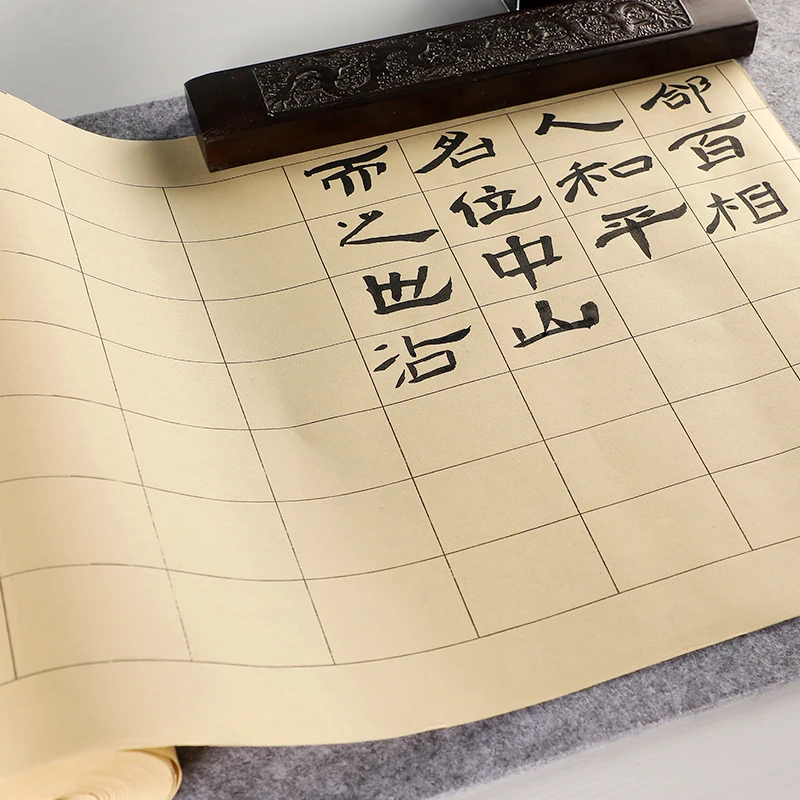 郃百相
人和平
名位中山
而之世沾